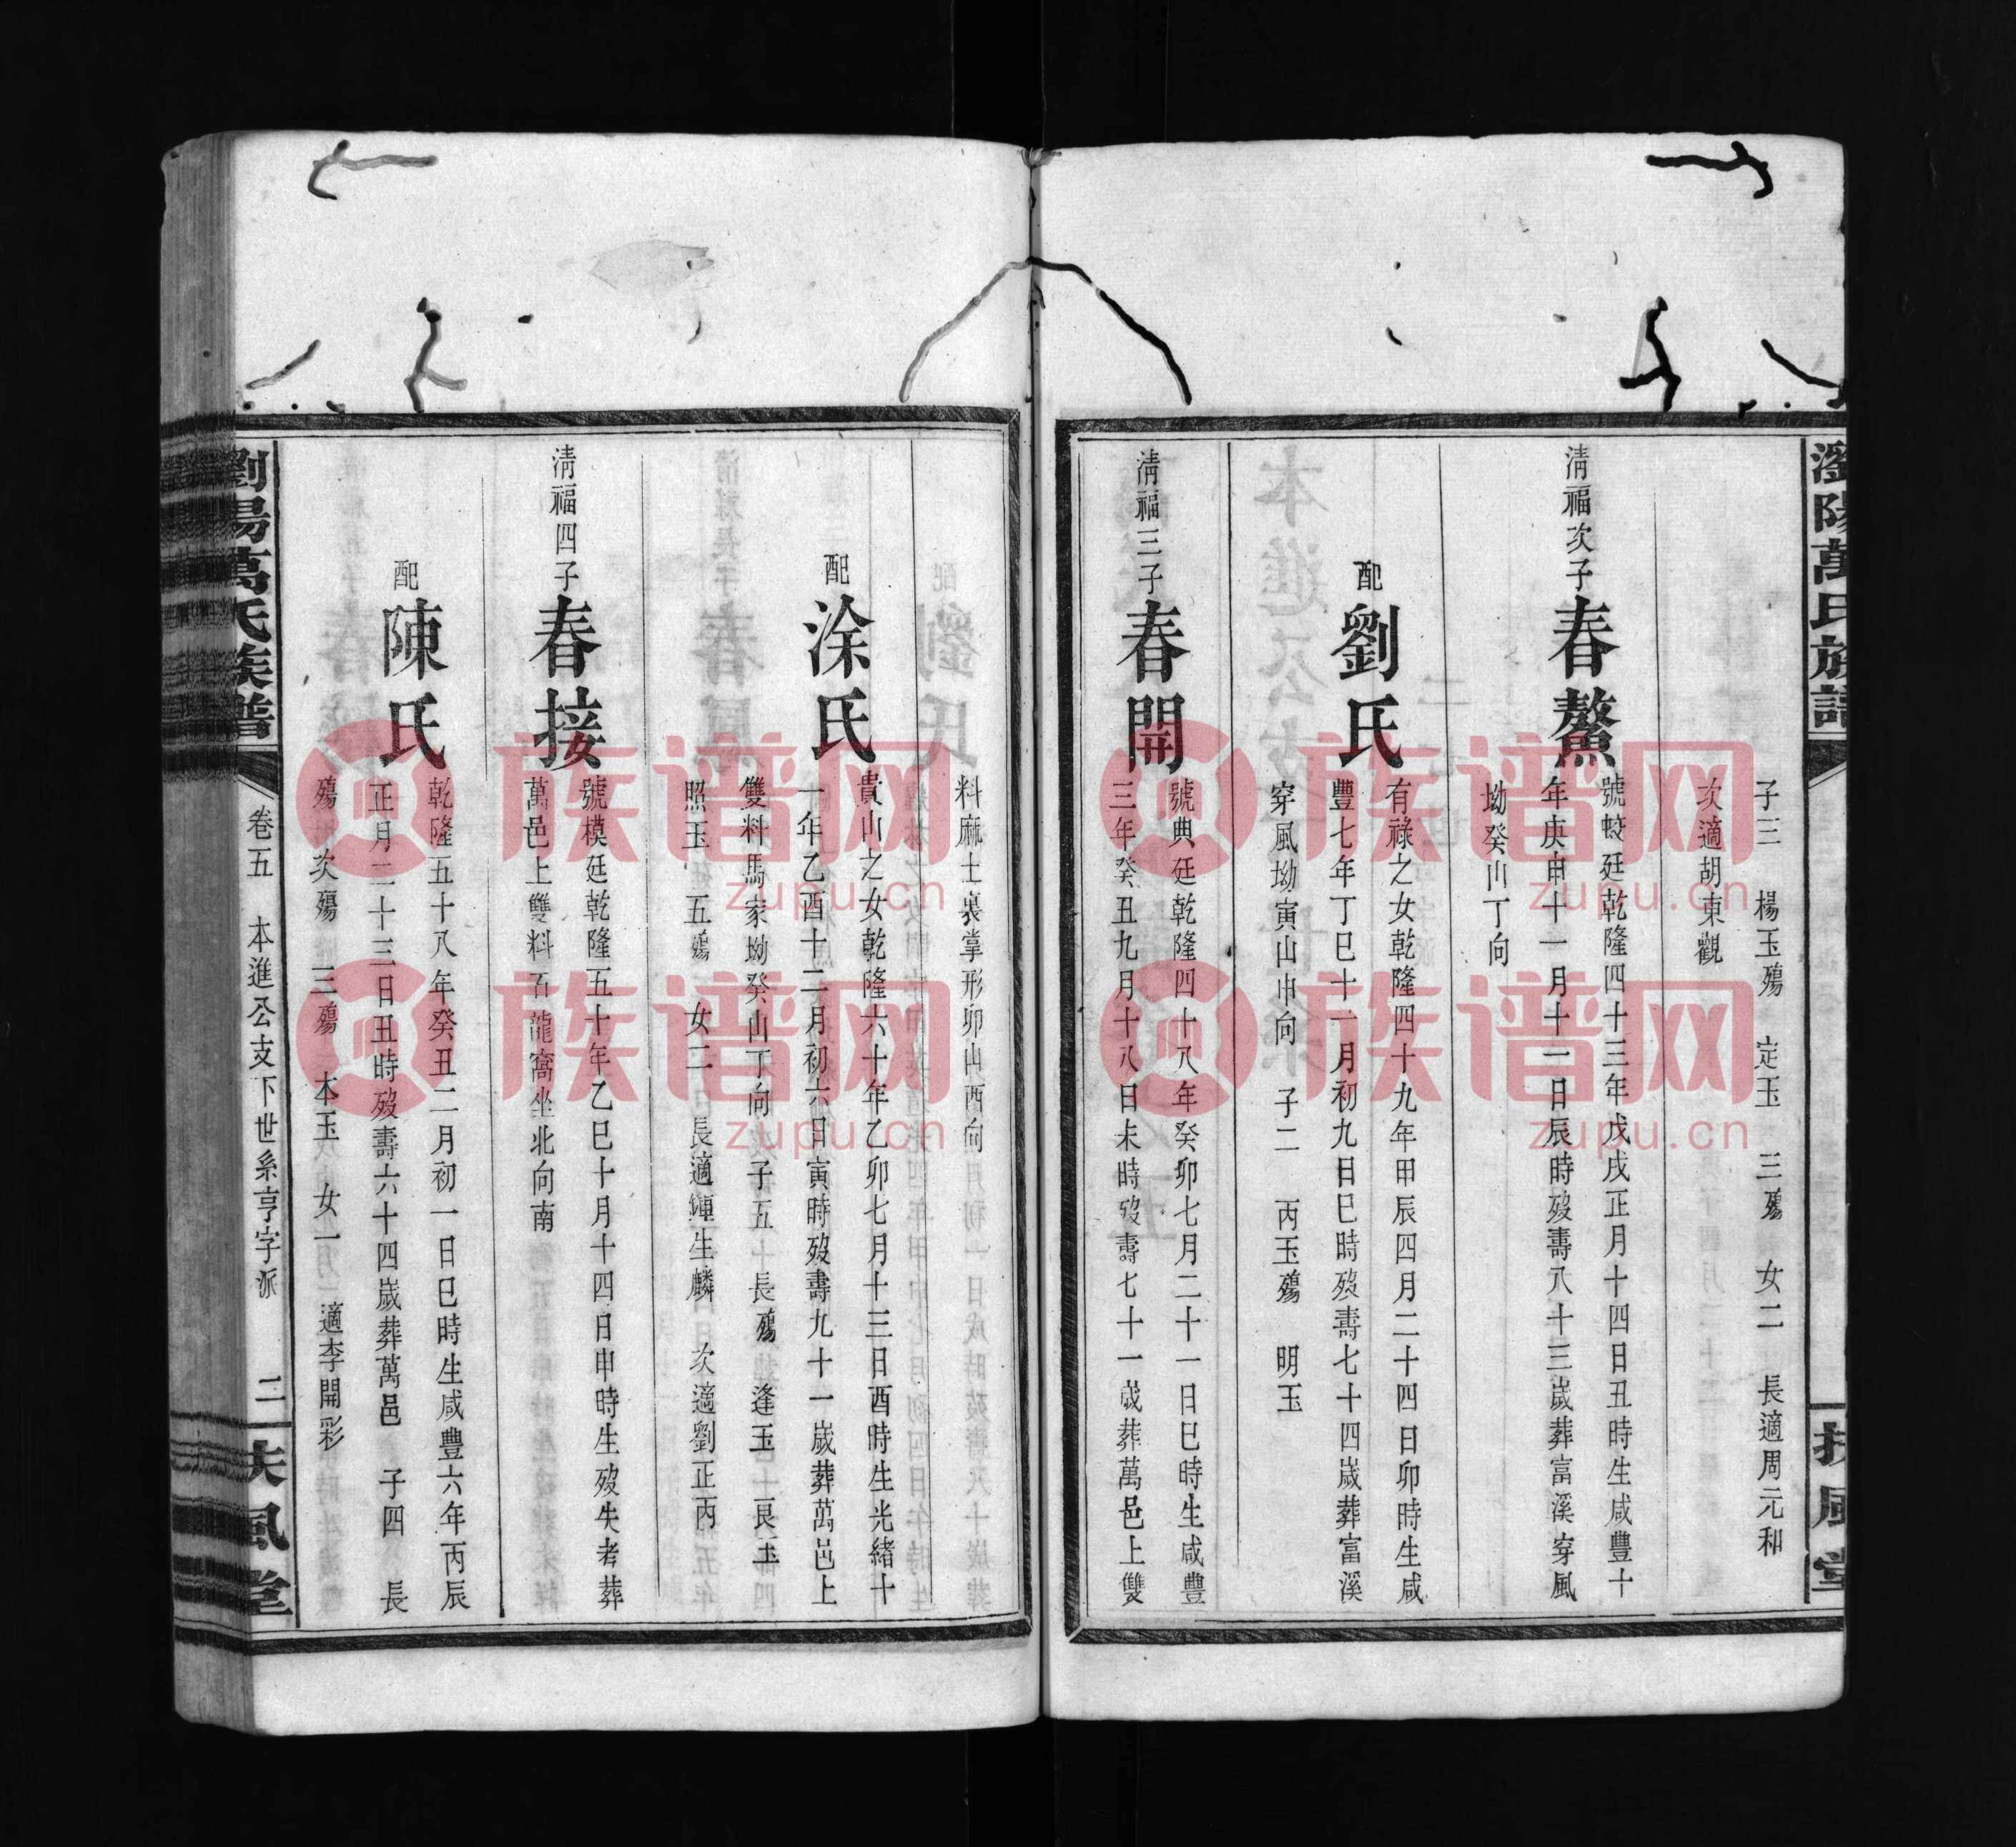 瀏陽萬氏族譜
扶風堂
子三 楊玉殤 定玉 三殤 女二 長適周元和
次適胡東觀
清福次子春鰲
號蛟廷乾隆四十三年戊戌正月十四日丑時生咸豐十
年庚申十一月十一日辰時歿壽八十三歲葬富溪穿風
坳癸山丁向
配劉氏
有祿之女乾隆四十九年甲辰四月二十四日卯時生咸
豐七年丁巳十一月初九日巳時歿壽七十四歲葬富溪
穿風坳寅山申向 子二 丙玉殤 明玉
清福三子春開
號典廷乾隆四十八年癸卯七月二十一日巳時生咸豐
三年癸丑九月十八日未時歿壽七十一歲葬萬邑上雙
料麻士裏掌形卯山酉向
配涂氏
貴山之女乾隆六十年乙卯七月十三日酉時生光緒十
一年乙酉十二月初六日寅時歿壽九十一歲葬萬邑上
雙料馬家坳癸山丁向 子五 長殤 逢玉 艮玉
照玉 五殤 女二 長適 生麟 次適劉正丙
清福四子春接
號模廷乾隆五十年乙巳十月十四日申時生歿失考葬
萬邑上雙料石龍窩坐北向南
配陳氏
乾隆五十八年癸丑二月初一日巳時生咸豐六年丙辰
正月二十三日丑時歿壽六十四歲葬萬邑 子四 長
殤 次殤 三殤 本玉 女一 適李開彩
瀏陽萬氏族譜
卷五 本進公支下世系亨字派 二
扶風堂
族谱网
zupu.cn
族谱网
zupu.cn
族谱网
zupu.cn
族谱网
zupu.cn